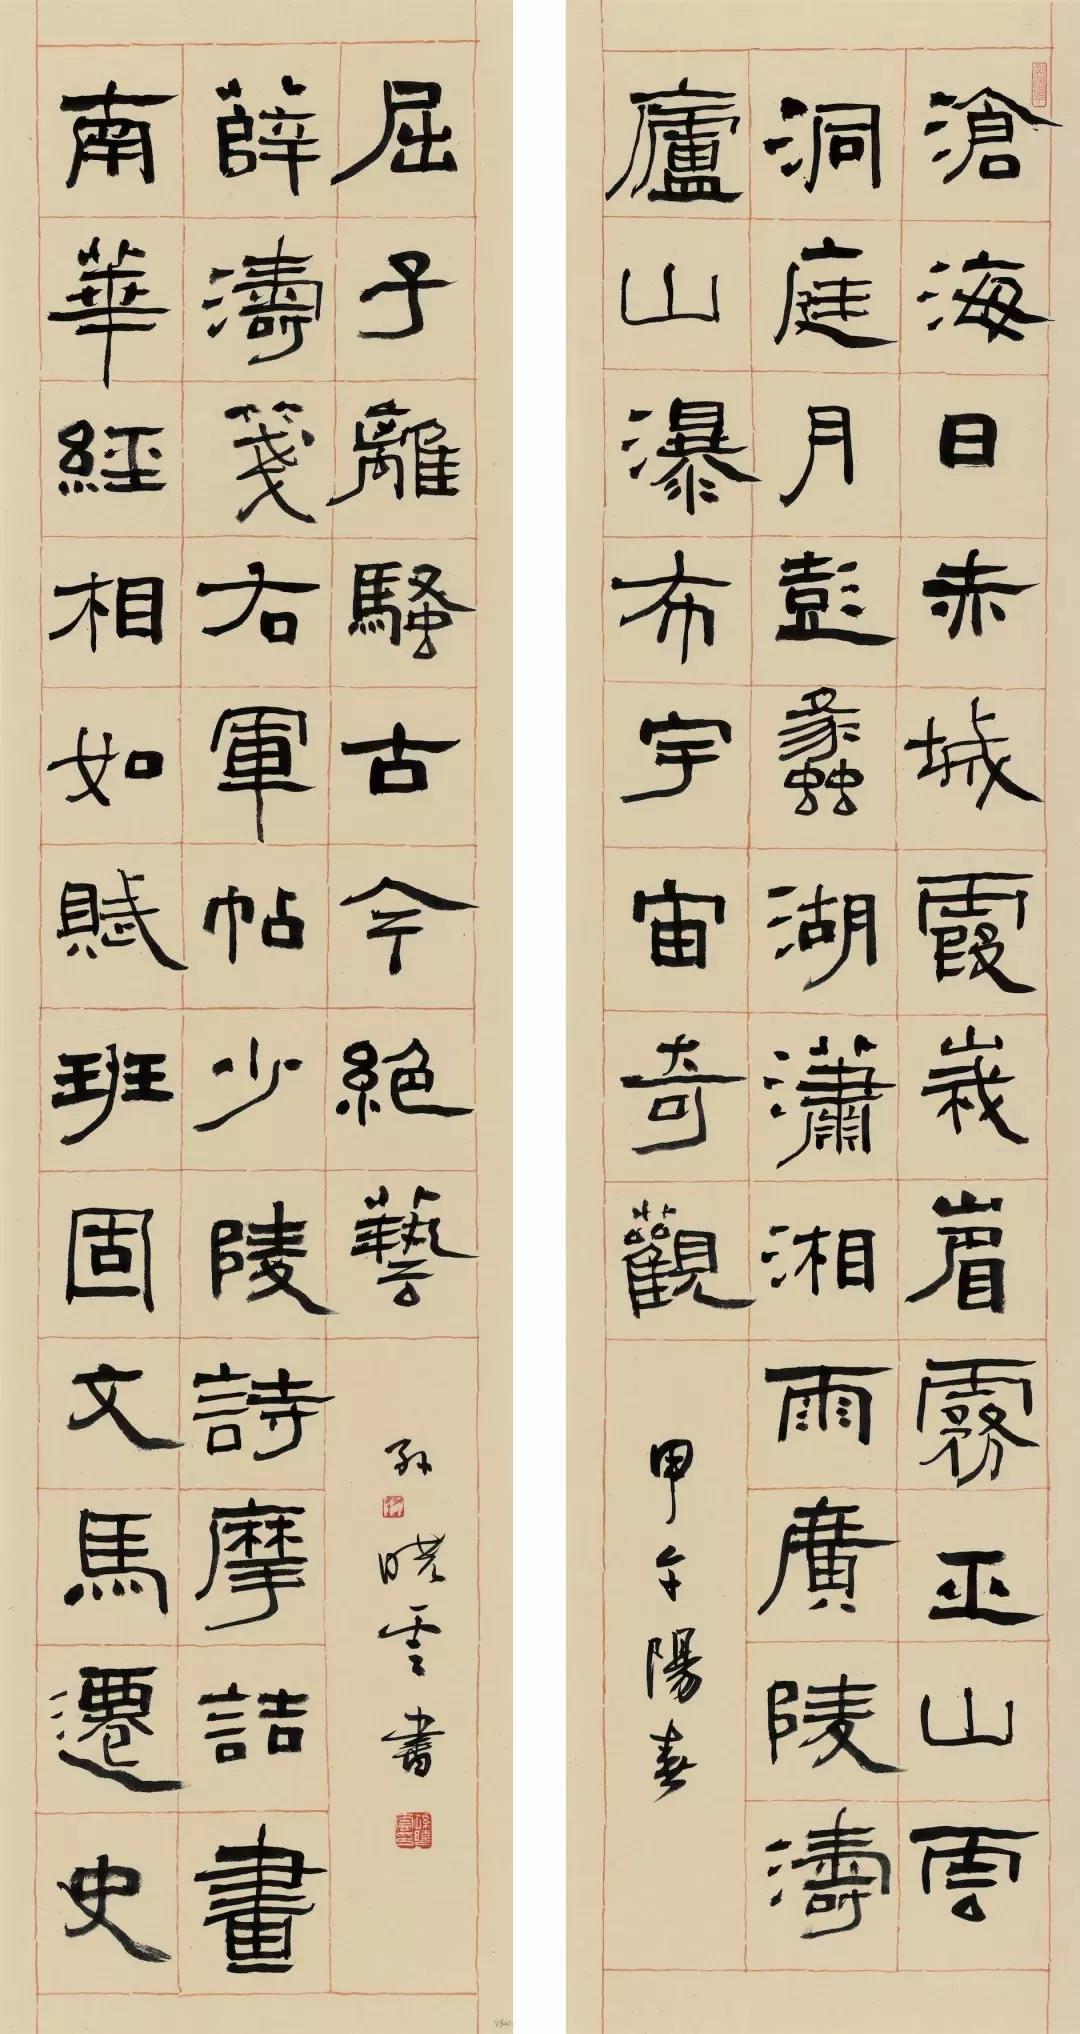 滄海日赤城霞峩嵋霧巫山雲
洞庭月彭蠡湖瀟湘雨廣陵濤
廬山瀑布宇宙奇觀
甲午陽春
南華經相如賦班固文馬遷史
薛濤箋右軍帖少陵詩摩詰畫
屈子離騷古今絶藝
孫曉雲書